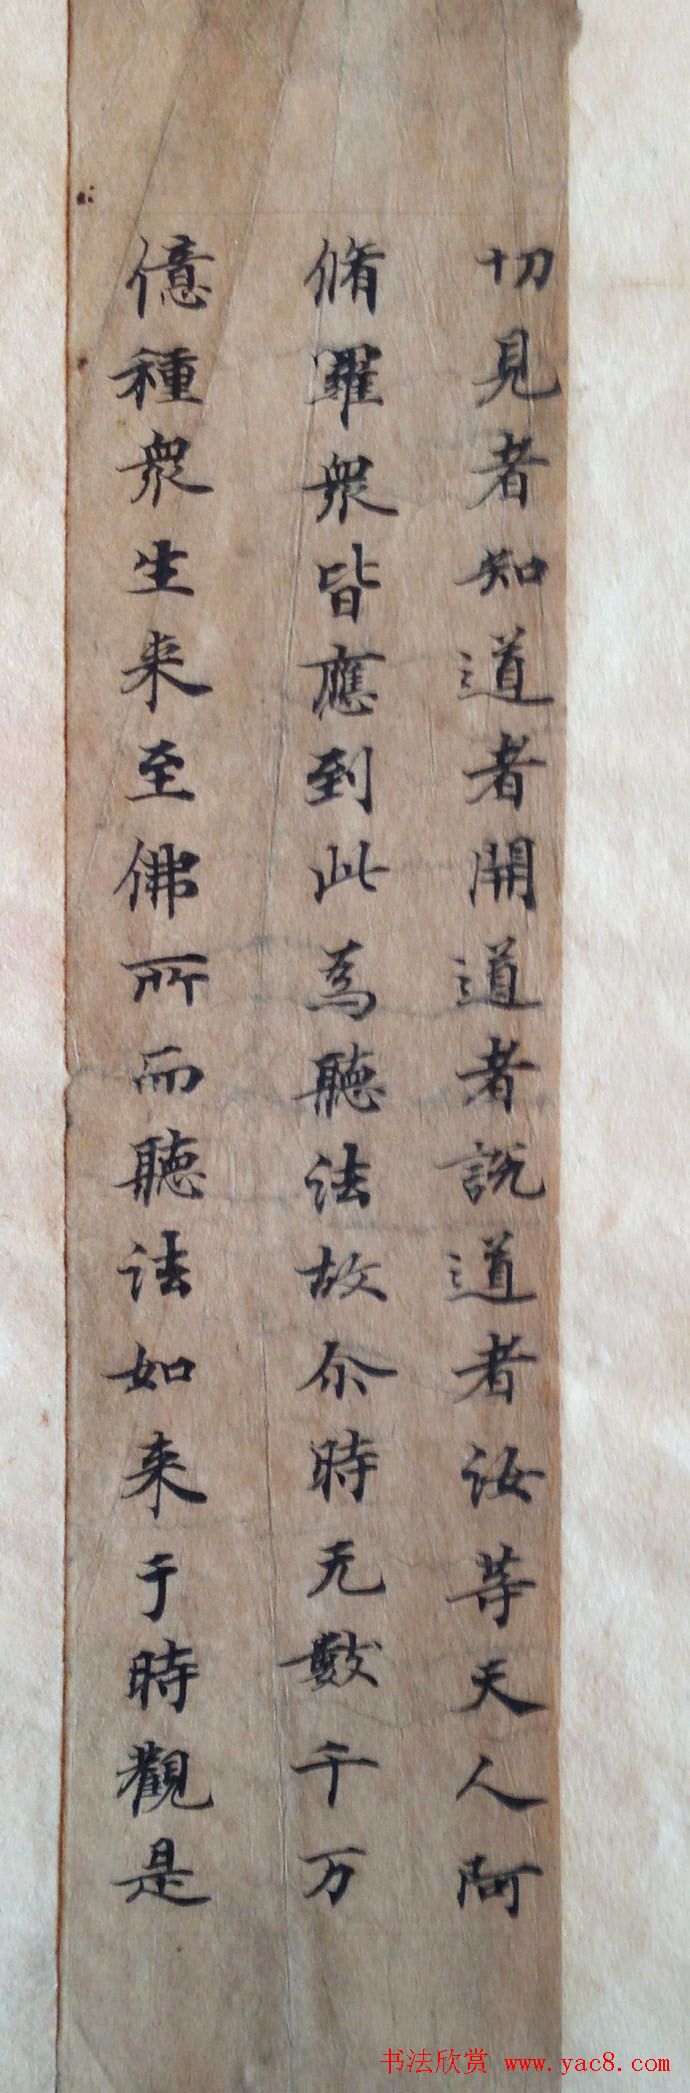 切見者知道者開道者說道者汝等天人阿
脩羅衆皆應到此為聽法故尒時无數千万
億種衆生来至佛所而聽法如来于時觀是
书法欣赏 www.yac8.com